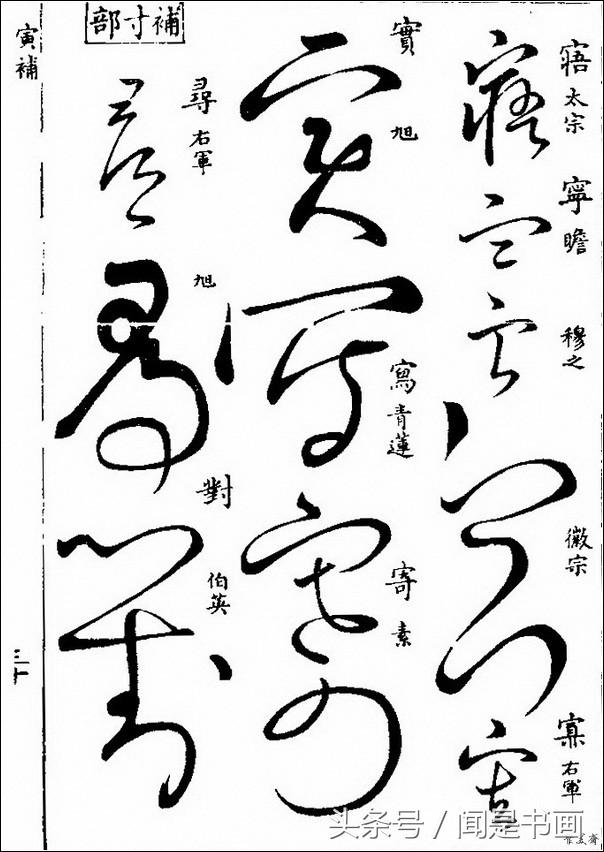 寤 太宗
寧 瞻
穆之
徽宗
右軍
實 旭
寫 青蓮
寄 素
補寸部
尋 右軍
旭
對 伯英
寅補
三十
头条号 / 闻是书画